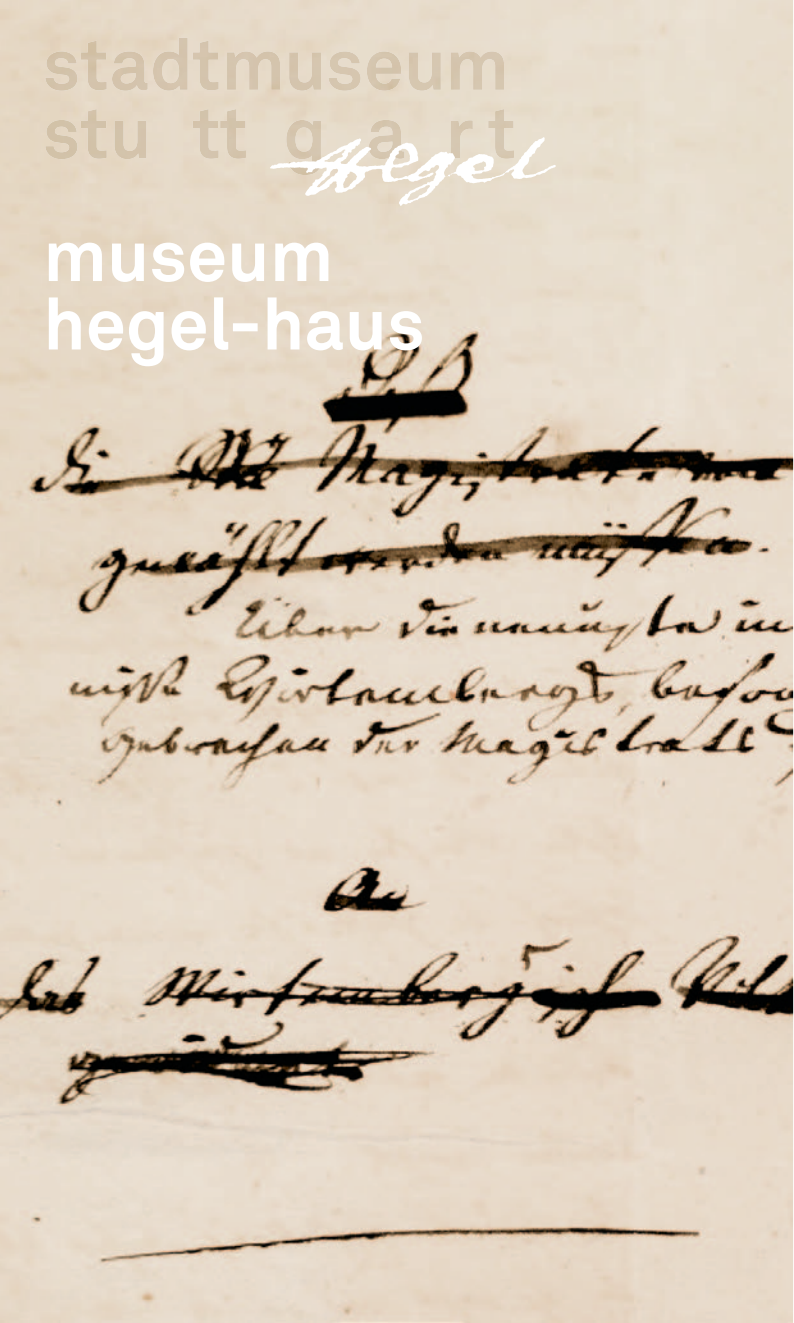 stadtmuseum
stu tt g a r t
Hegel
museum
hegel-haus
Daß
die Magistrate von
gewählt werden müssen.
Über die neueste in
nisse Wirtembergs, beson
gebrechen der Magistrats
An
das Wirtembergische Volk